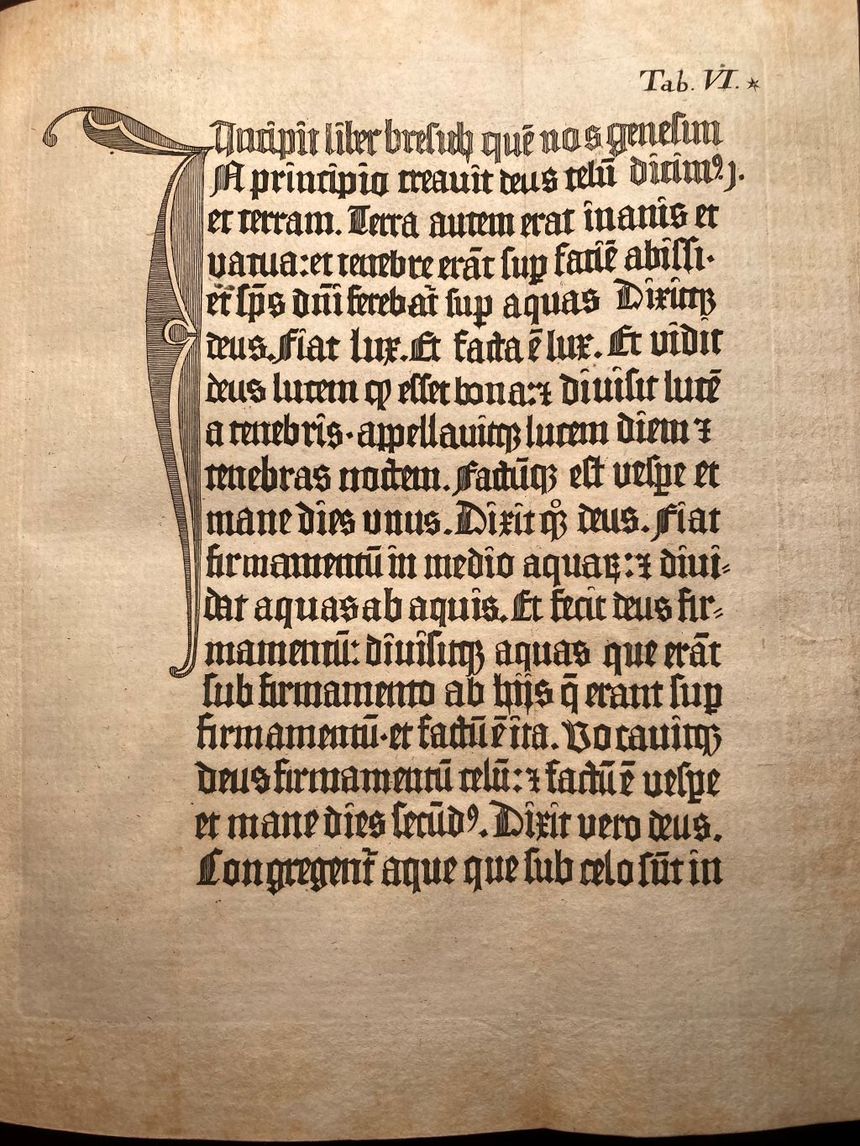 Tab. VI. *
Incipit liber bresith quē nos genesim
IN principio creavit deus celū dicimꝰ j.
et terram. Terra autem erat inanis et
vacua: et tenebre erāt suꝑ faciē abissi.
et sp̄s dn̄i ferebat̄ suꝑ aquas Dixitqꝫ
deus. Fiat lux. Et facta ē lux. Et vidit
deus lucem ꝙ esset bona: ⁊ divisit lucē
a tenebris. appellavitqꝫ lucem diem ⁊
tenebras noctem. Factūqꝫ est vesꝑe et
mane dies unus. Dixit qͦꝫ deus. Fiat
firmamentū in medio aquaꝝ: ⁊ divi⸗
dat aquas ab aquis. Et fecit deus fir⸗
mamentū: divisitqꝫ aquas que erāt
sub firmamento ab hijs q̄ erant suꝑ
firmamentū. et factū ē ita. Vocavitqꝫ
deus firmamentū celū: ⁊ factū ē vesꝑe
et mane dies secūdꝰ. Dixit vero deus.
Congregent̄ aque que sub celo sūt in